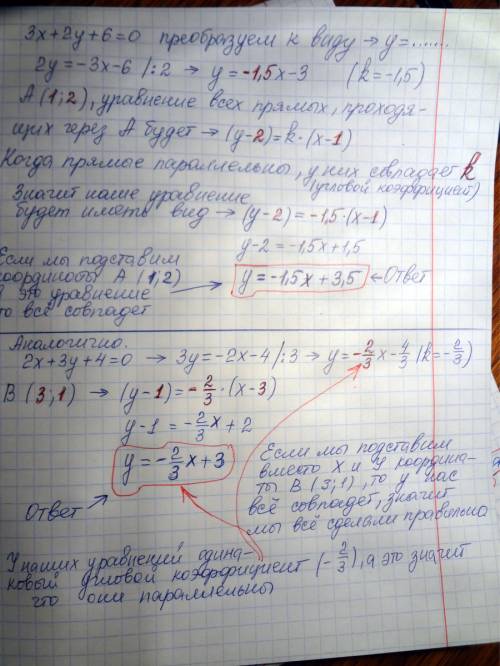 3x+2y+6=0 преобразуем к виду → y=......
2y=-3x-6 |:2 → y=-1,5x-3 (k=-1,5)
A (1;2), уравнение всех прямых, проходя-
щих через A будет → (y-2)=k·(x-1)
Когда прямые параллельны, у них совпадает k
(угловой коэффициент)
Значит наше уравнение
будет иметь вид → (y-2)=-1,5·(x-1)
y-2=-1,5x+1,5
Если мы подставим
координаты A (1;2)
в это уравнение
то всё совпадет
y=-1,5x+3,5 ← Ответ
Аналогично.
2x+3y+4=0 → 3y=-2x-4 |:3 → y=-2/3x-4/3 (k=-2/3)
B (3;1) → (y-1)=-2/3·(x-3)
y-1=-2/3x+2
y=-2/3x+3
Ответ
Если мы подставим
вместо X и Y координа-
ты B (3;1), то у нас
всё совпадет, значит
мы всё сделали правильно
У наших уравнений одина-
ковый угловой коэффициент (-2/3), а это значит
что они параллельны